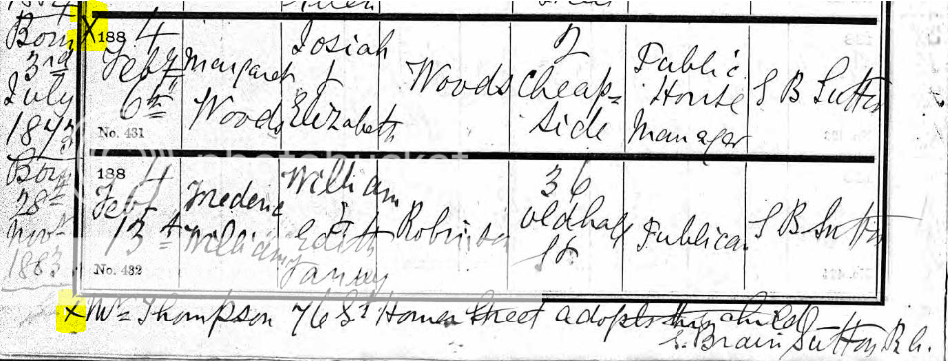 Born
3rd
July
1873
X 1884
Feby
6th
No. 431
Margaret
Woods
Josiah
&
Elizabeth
Woods
2
Cheap-
side
Public
House
Manager
S B Sutton
Born
28th
Novr
1883
1884
Feby
13th
No. 432
Frederic
William
William
&
Edith
Fanny
Robinson
36
Oldhall
St
Publican
S B Sutton
photobucket
X Mr Thompson 76 St Homer Street adopts this child
S. Brain Sutton